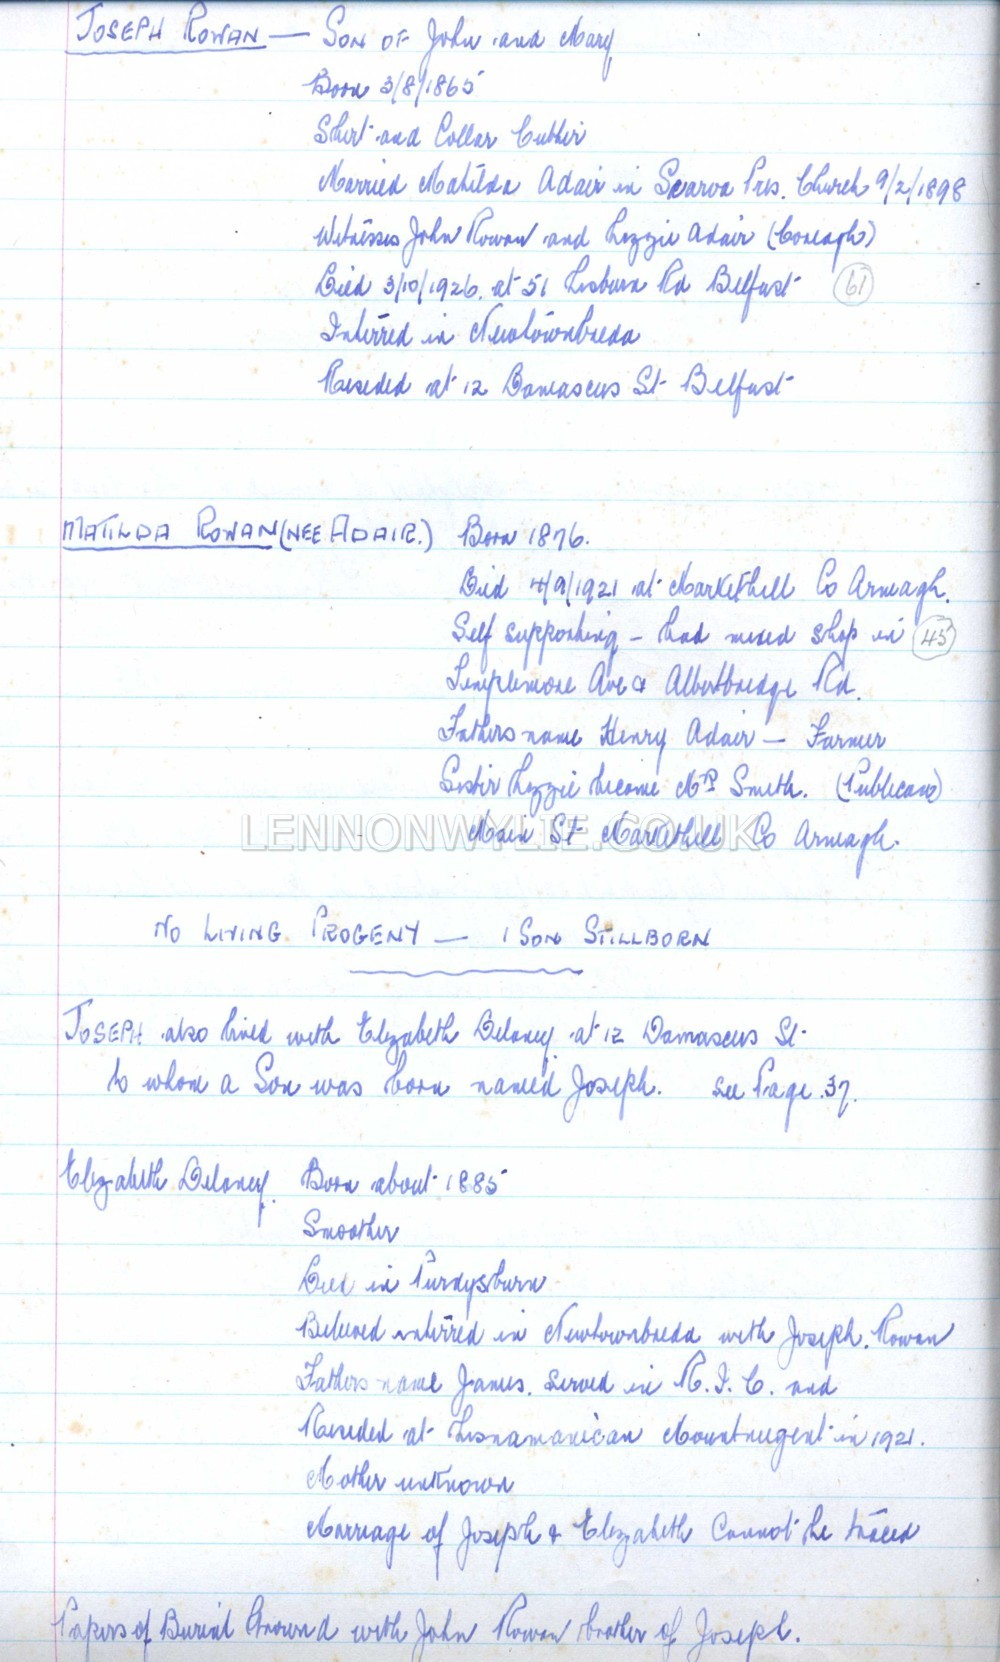 JOSEPH ROWAN — SON OF John and Mary
Born 3/8/1865
Shirt and Collar Cutter
Married Matilda Adair in Scarva Pres. Church 9/2/1898
Witnesses John Rowan and Lizzie Adair (Coneagh)
Died 3/10/1926. at 51 Lisburn Rd Belfast (61)
Interred in Newtownbreda
Resided at 12 Damascus St Belfast
MATILDA ROWAN (NEE ADAIR.) Born 1876.
Died 4/9/1921 at Markethill Co Armagh.
Self supporting – had mixed shop in (45)
Templemore Ave & Albertbridge Rd.
Fathers name Henry Adair – Farmer
Sister Lizzie became Mrs Smith. (Publican)
Main St Markethill Co Armagh.
LENNONWYLIE.CO.UK
NO LIVING PROGENY — 1 SON STILLBORN
JOSEPH also lived with Elizabeth Delaney at 12 Damascus St
to whom a Son was born named Joseph. see Page 37.
Elizabeth Delaney. Born about 1885
Smoother
Died in Purdysburn
Believed interred in Newtownbreda with Joseph. Rowan
Fathers name James. served in R.I.C. and
Resided at Mountnugent in 1921.
Mother unknown
Marriage of Joseph & Elizabeth Cannot be traced
Papers of Burial Ground with John Rowan brother of Joseph.